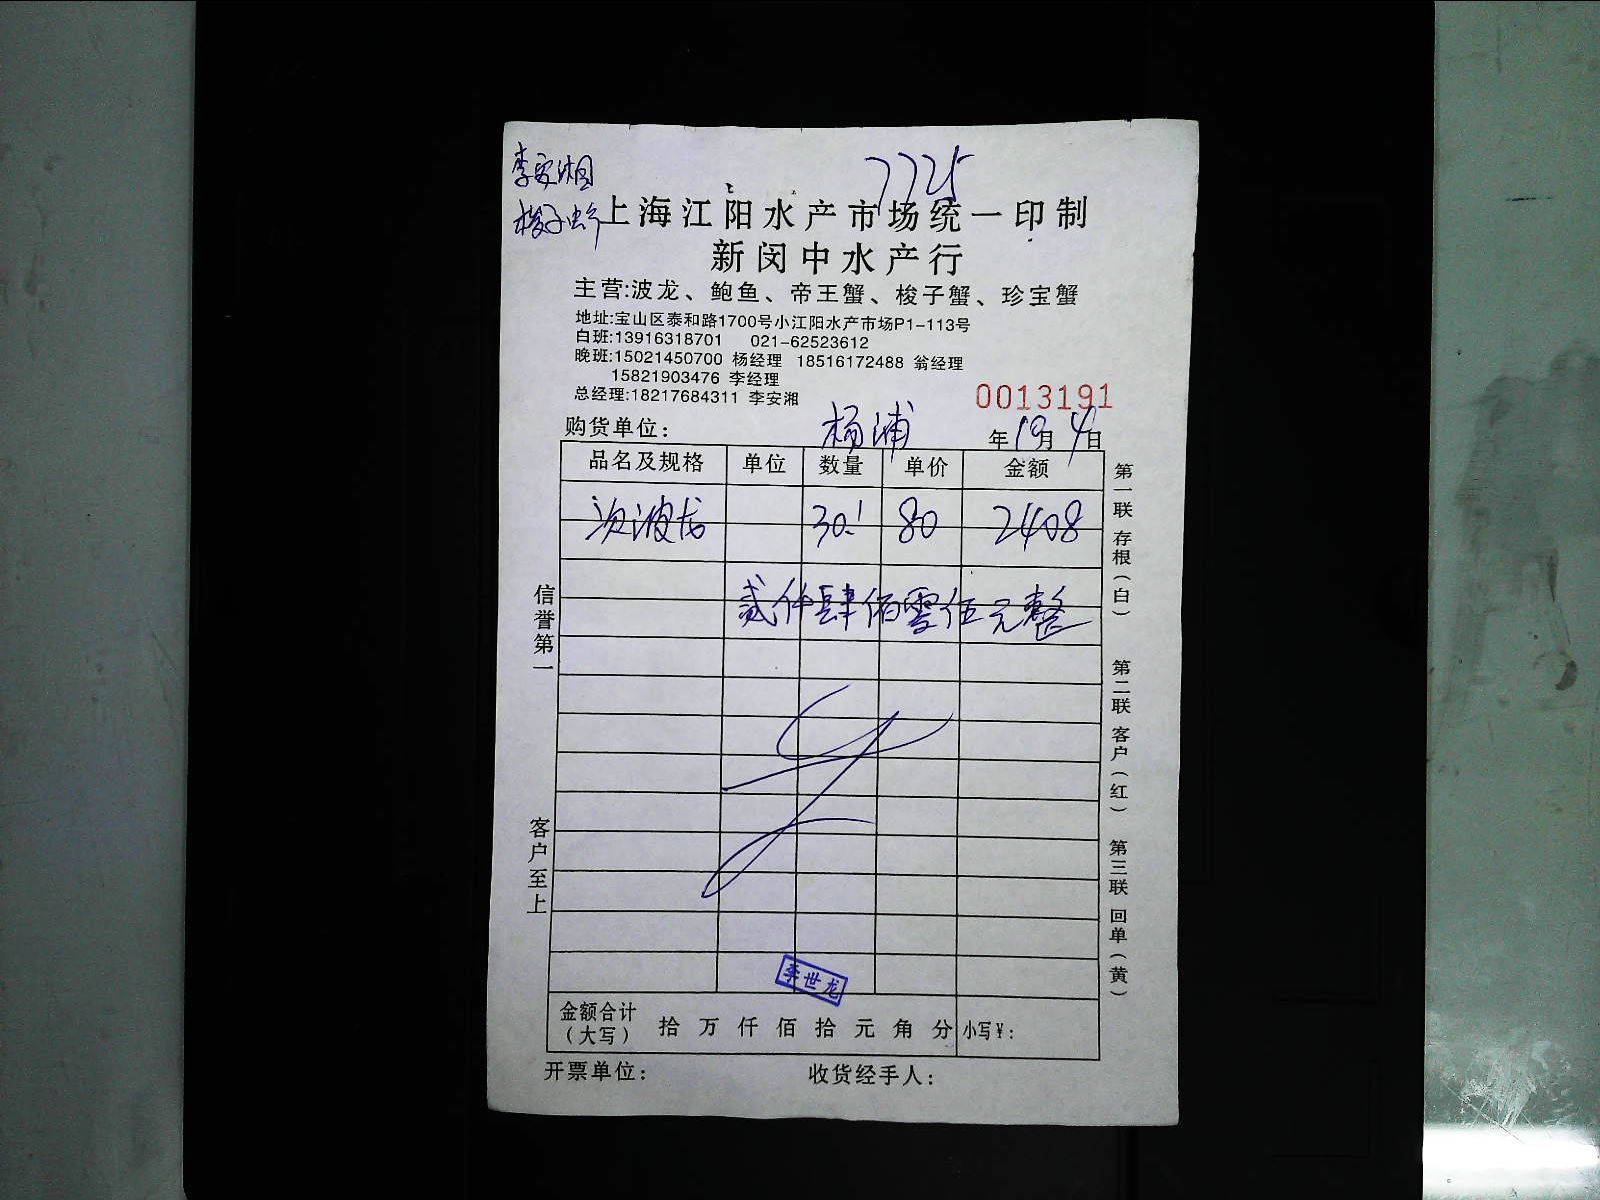 李安湘
7725
梭子蟹
上海江阳水产市场统一印制
新闵中水产行
主营:波龙、鲍鱼、帝王蟹、梭子蟹、珍宝蟹
地址:宝山区泰和路1700号小江阳水产市场P1-113号
白班:13916318701 021-62523612
晚班:15021450700 杨经理 18516172488 翁经理
15821903476 李经理
总经理:18217684311 李安湘
0013191
购货单位: 杨浦 年10月4日
品名及规格 单位 数量 单价 金额
次波龙 30.1 80 2408
贰仟肆佰零伍元整
李世龙
金额合计(大写) 拾 万 仟 佰 拾 元 角 分 小写¥:
开票单位: 收货经手人:
信誉第一
客户至上
第一联 存根(白)
第二联 客户(红)
第三联 回单(黄)